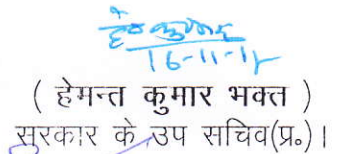 हेमन्त कुमार
16-11-15
( हेमन्त कुमार भक्त )
सुरकार के उप सचिव(प्र॰)।